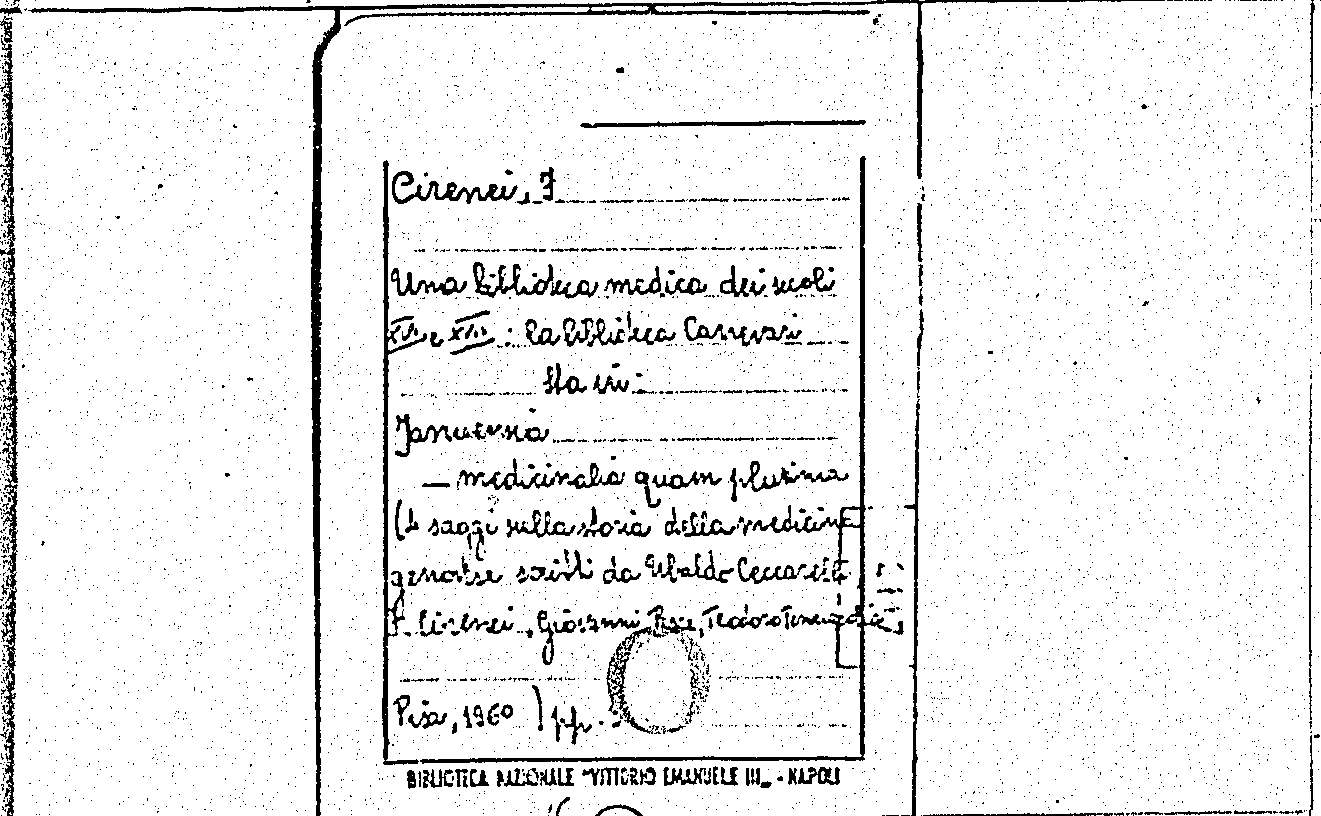 Cirenei, F
Una biblioteca medica dei secoli
XVI e XVII : la biblioteca Canevari
Sta in:
Januensia
— medicinalia quam plurima
(4 saggi sulla storia della medicina
genovese scritti da Ubaldo Ceccarelli,
F. Cirenei, Giovanni Pesce, Teodoro
Pisa, 1960) pp.
BIBLIOTECA NAZIONALE "VITTORIO EMANUELE III" - NAPOLI